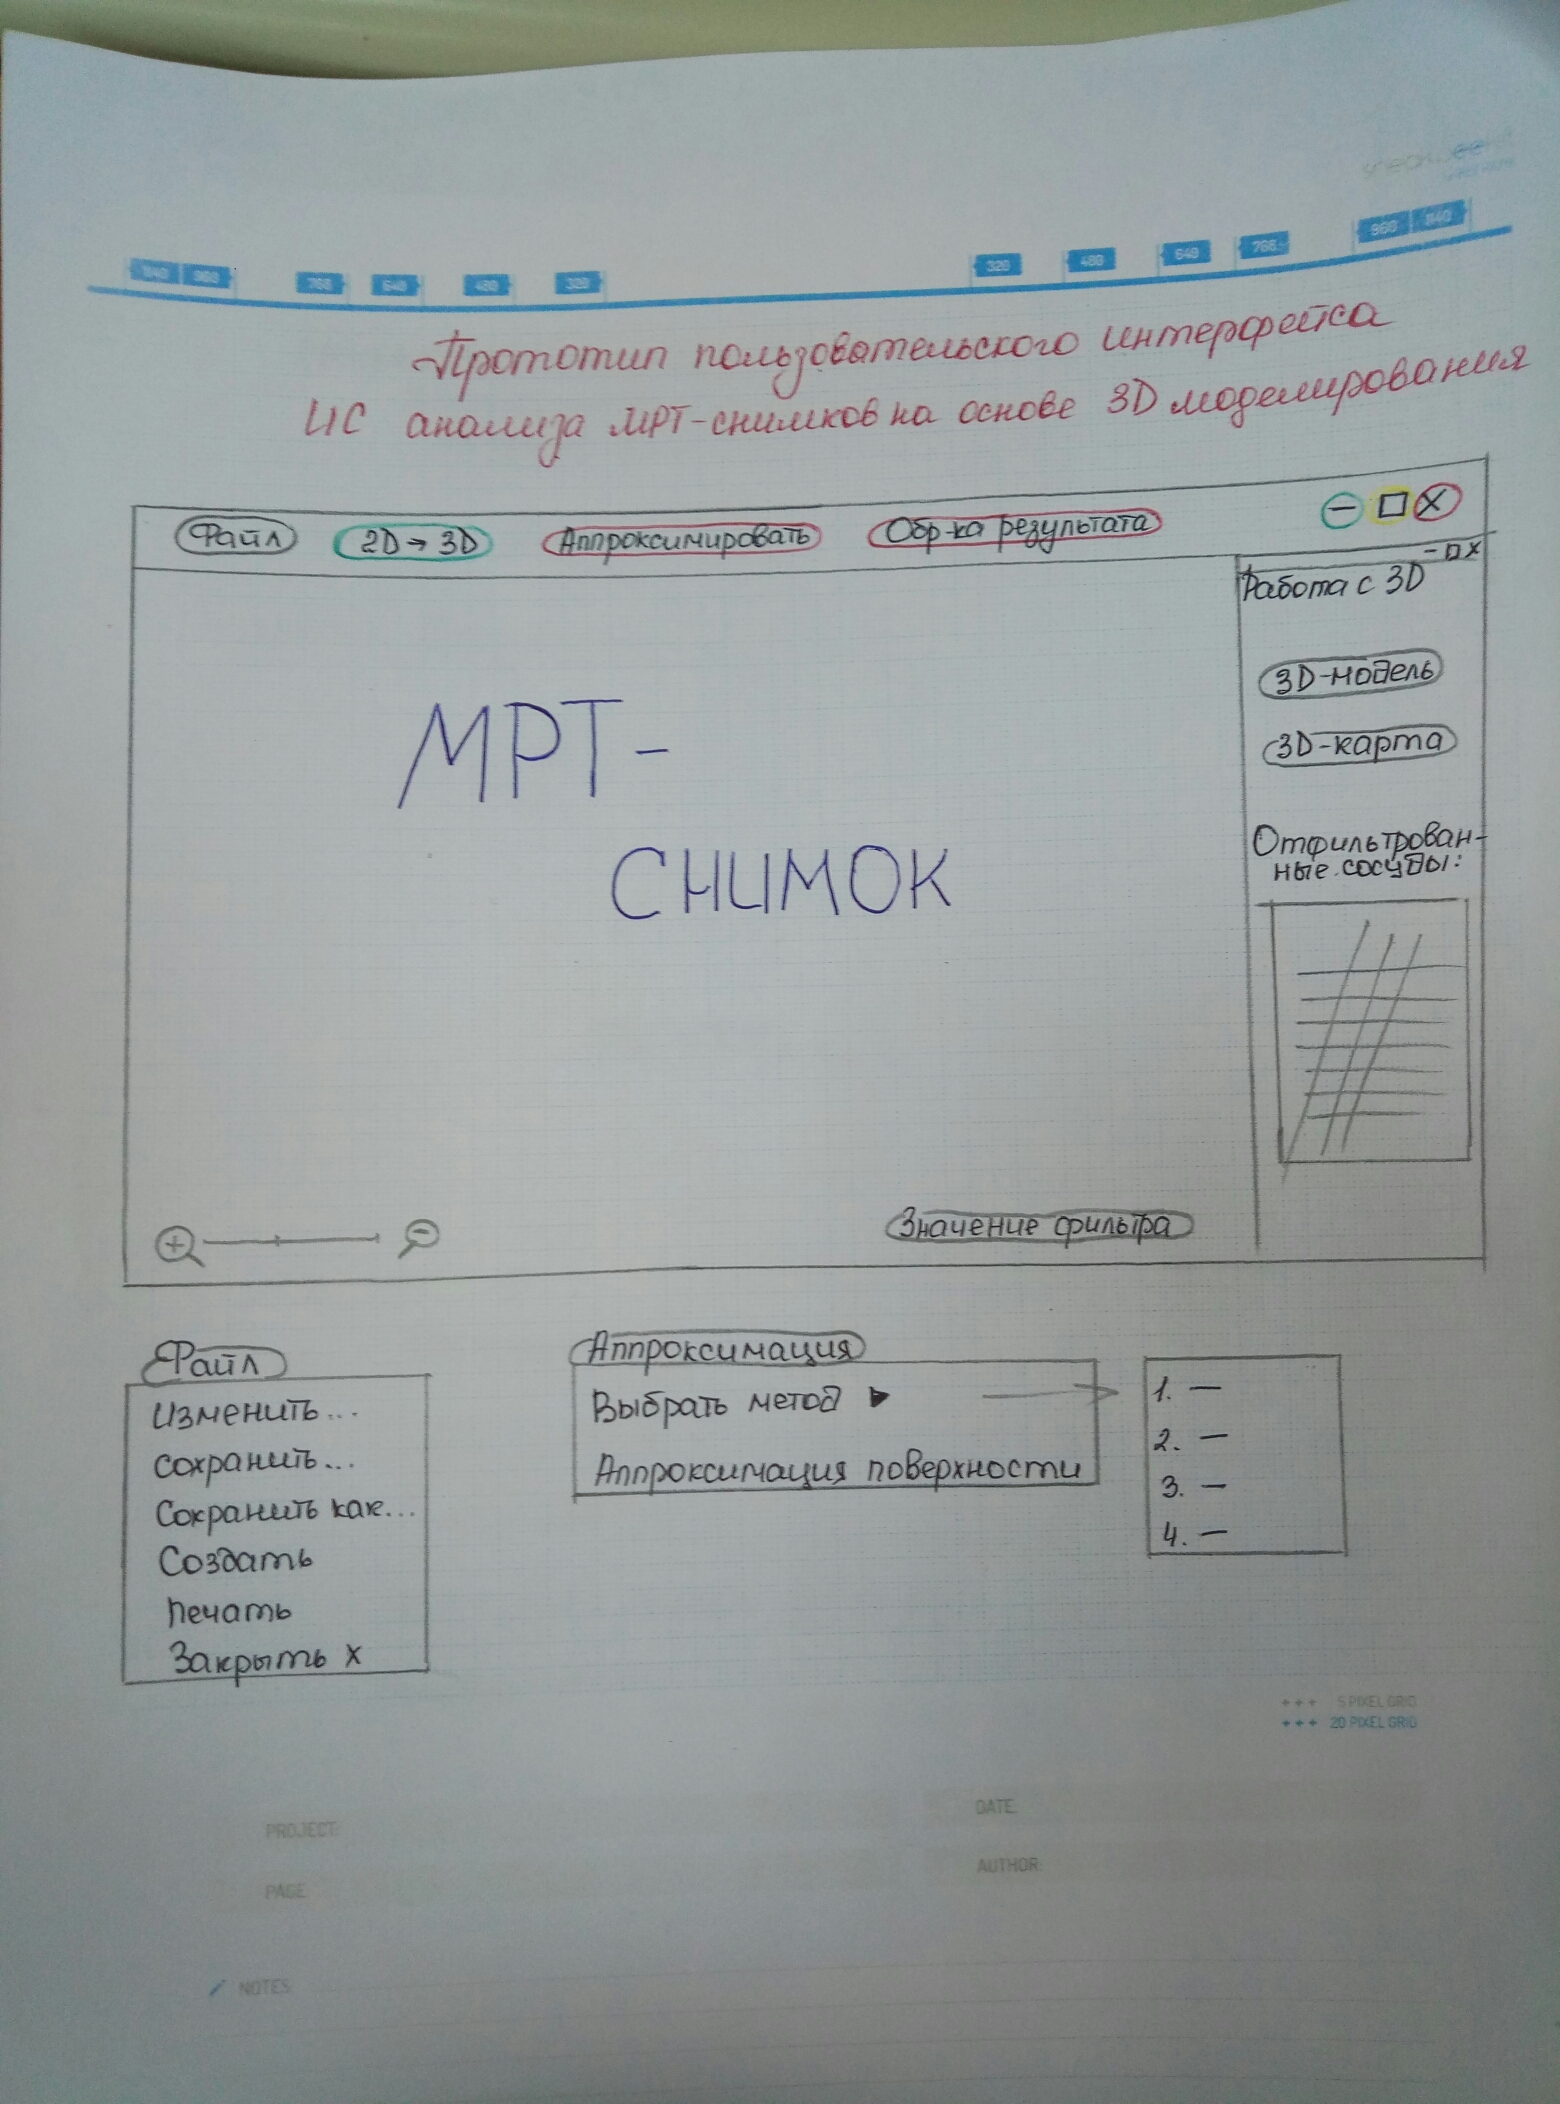 1140 960 768 640 480 320 320 480 640 768 960 1140
Прототип пользовательского интерфейса
ИС анализа МРТ-снимков на основе 3D моделирования
Файл 2D → 3D Аппроксимировать Обр-ка результата — □ X
- □ X
Работа с 3D
3D-модель
3D-карта
МРТ-
СНИМОК
Отфильтрован-
ные сосуды:
+ - Значение фильтра
Файл
Изменить...
Сохранить...
Сохранить как...
Создать
Печать
Закрыть X
Аппроксимация
Выбрать метод ▶
Аппроксимация поверхности
1. —
2. —
3. —
4. —
+ + + 5 PIXEL GRID
+ + + 20 PIXEL GRID
PROJECT:
DATE:
PAGE:
AUTHOR:
NOTES: